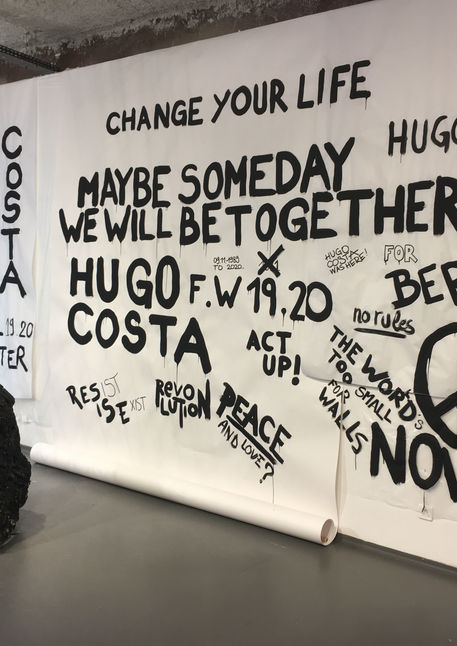 COSTA
19 20
TER
CHANGE YOUR LIFE
HUGO
MAYBE SOMEDAY
WE WILL BE TOGETHER
09.11-1989
TO 2020.
X
HUGO
COSTA
WAS HERE!
FOR
HUGO F.W 19.20
COSTA
BER
no rules
ACT
UP!
THE WORDS
TOO SMALL
FOR
WALLS
RESIST
ISE XIST
REVO
LUTION
PEACE
AND LOVE?
NOW